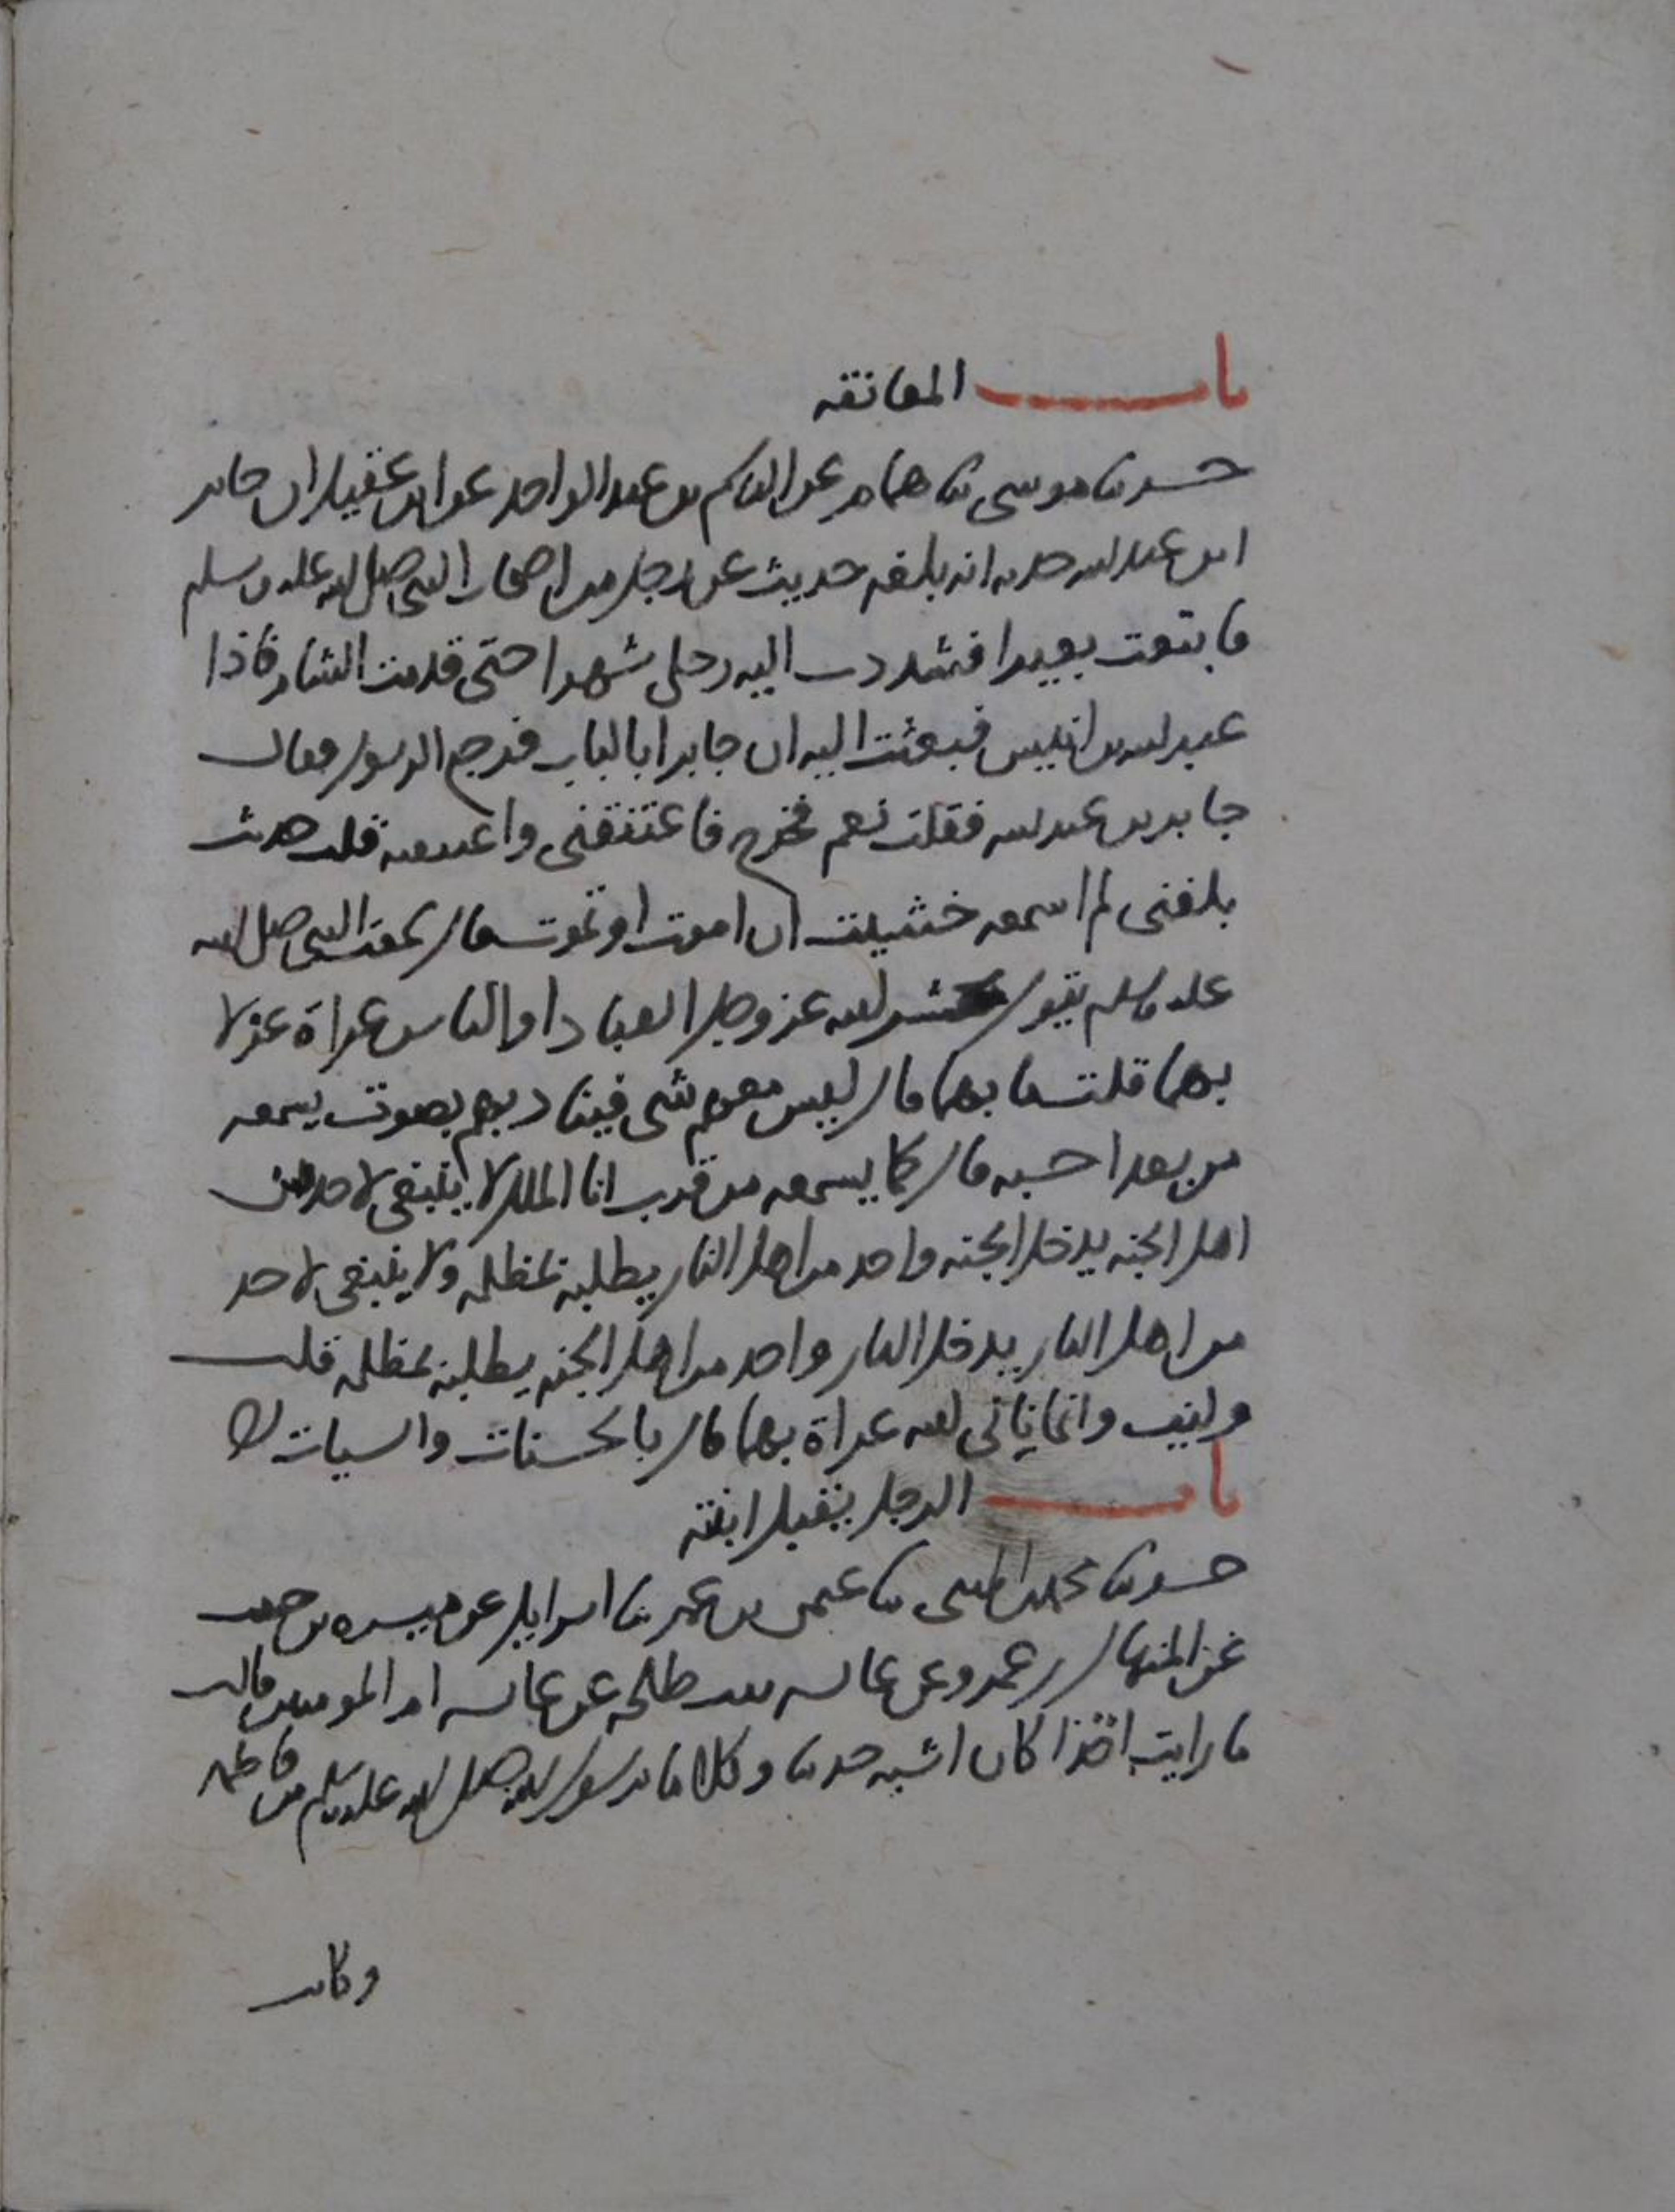 باب المعانقه
حدثنا موسى ثنا همام عن القاسم بن عبد الواحد عن ابن عقيل ان جابر
ابن عبد الله حدثه انه بلغه حديث عن رجل من اصحاب النبي صلى الله عليه وسلم
فابتعت بعيرا فشددت اليه رحلى شهرا حتى قدمت الشام فاذا
عبد الله بن انيس فبعثت اليه ان جابرا بالباب فرجع الرسول فقال
جابر بن عبد الله فقلت نعم فخرج فاعتنقنى واعتنقته قلت حديث
بلغنى لم اسمعه خشيت ان اموت او تموت قال سمعت النبي صلى الله
عليه وسلم يقول يحشر الله عز وجل العباد او الناس عراة غرلا
بهما قلت ما بهما قال ليس معهم شى فيناديهم بصوت يسمعه
من بعد احسبه قال كما يسمعه من قرب انا الملك لا ينبغى لاحد من
اهل الجنه يدخل الجنه واحد من اهل النار يطلبه بمظلمه ولا ينبغى لاحد
من اهل النار يدخل النار واحد من اهل الجنه يطلبه بمظلمه قلت
وكيف وانما ناتى الله عراة بهما قال بالحسنات والسيات
باب الرجل يقبل ابنته
حدثنا محمد بن المثنى ثنا عثمن بن عمر ثنا اسرايل عن ميسره بن حبيب
عن المنهال بن عمرو عن عايشه بنت طلحه عن عايشه ام المومنين قالت
ما رايت احدا كان اشبه حديثا وكلاما برسول الله صلى الله عليه وسلم من فاطمه
وكانت